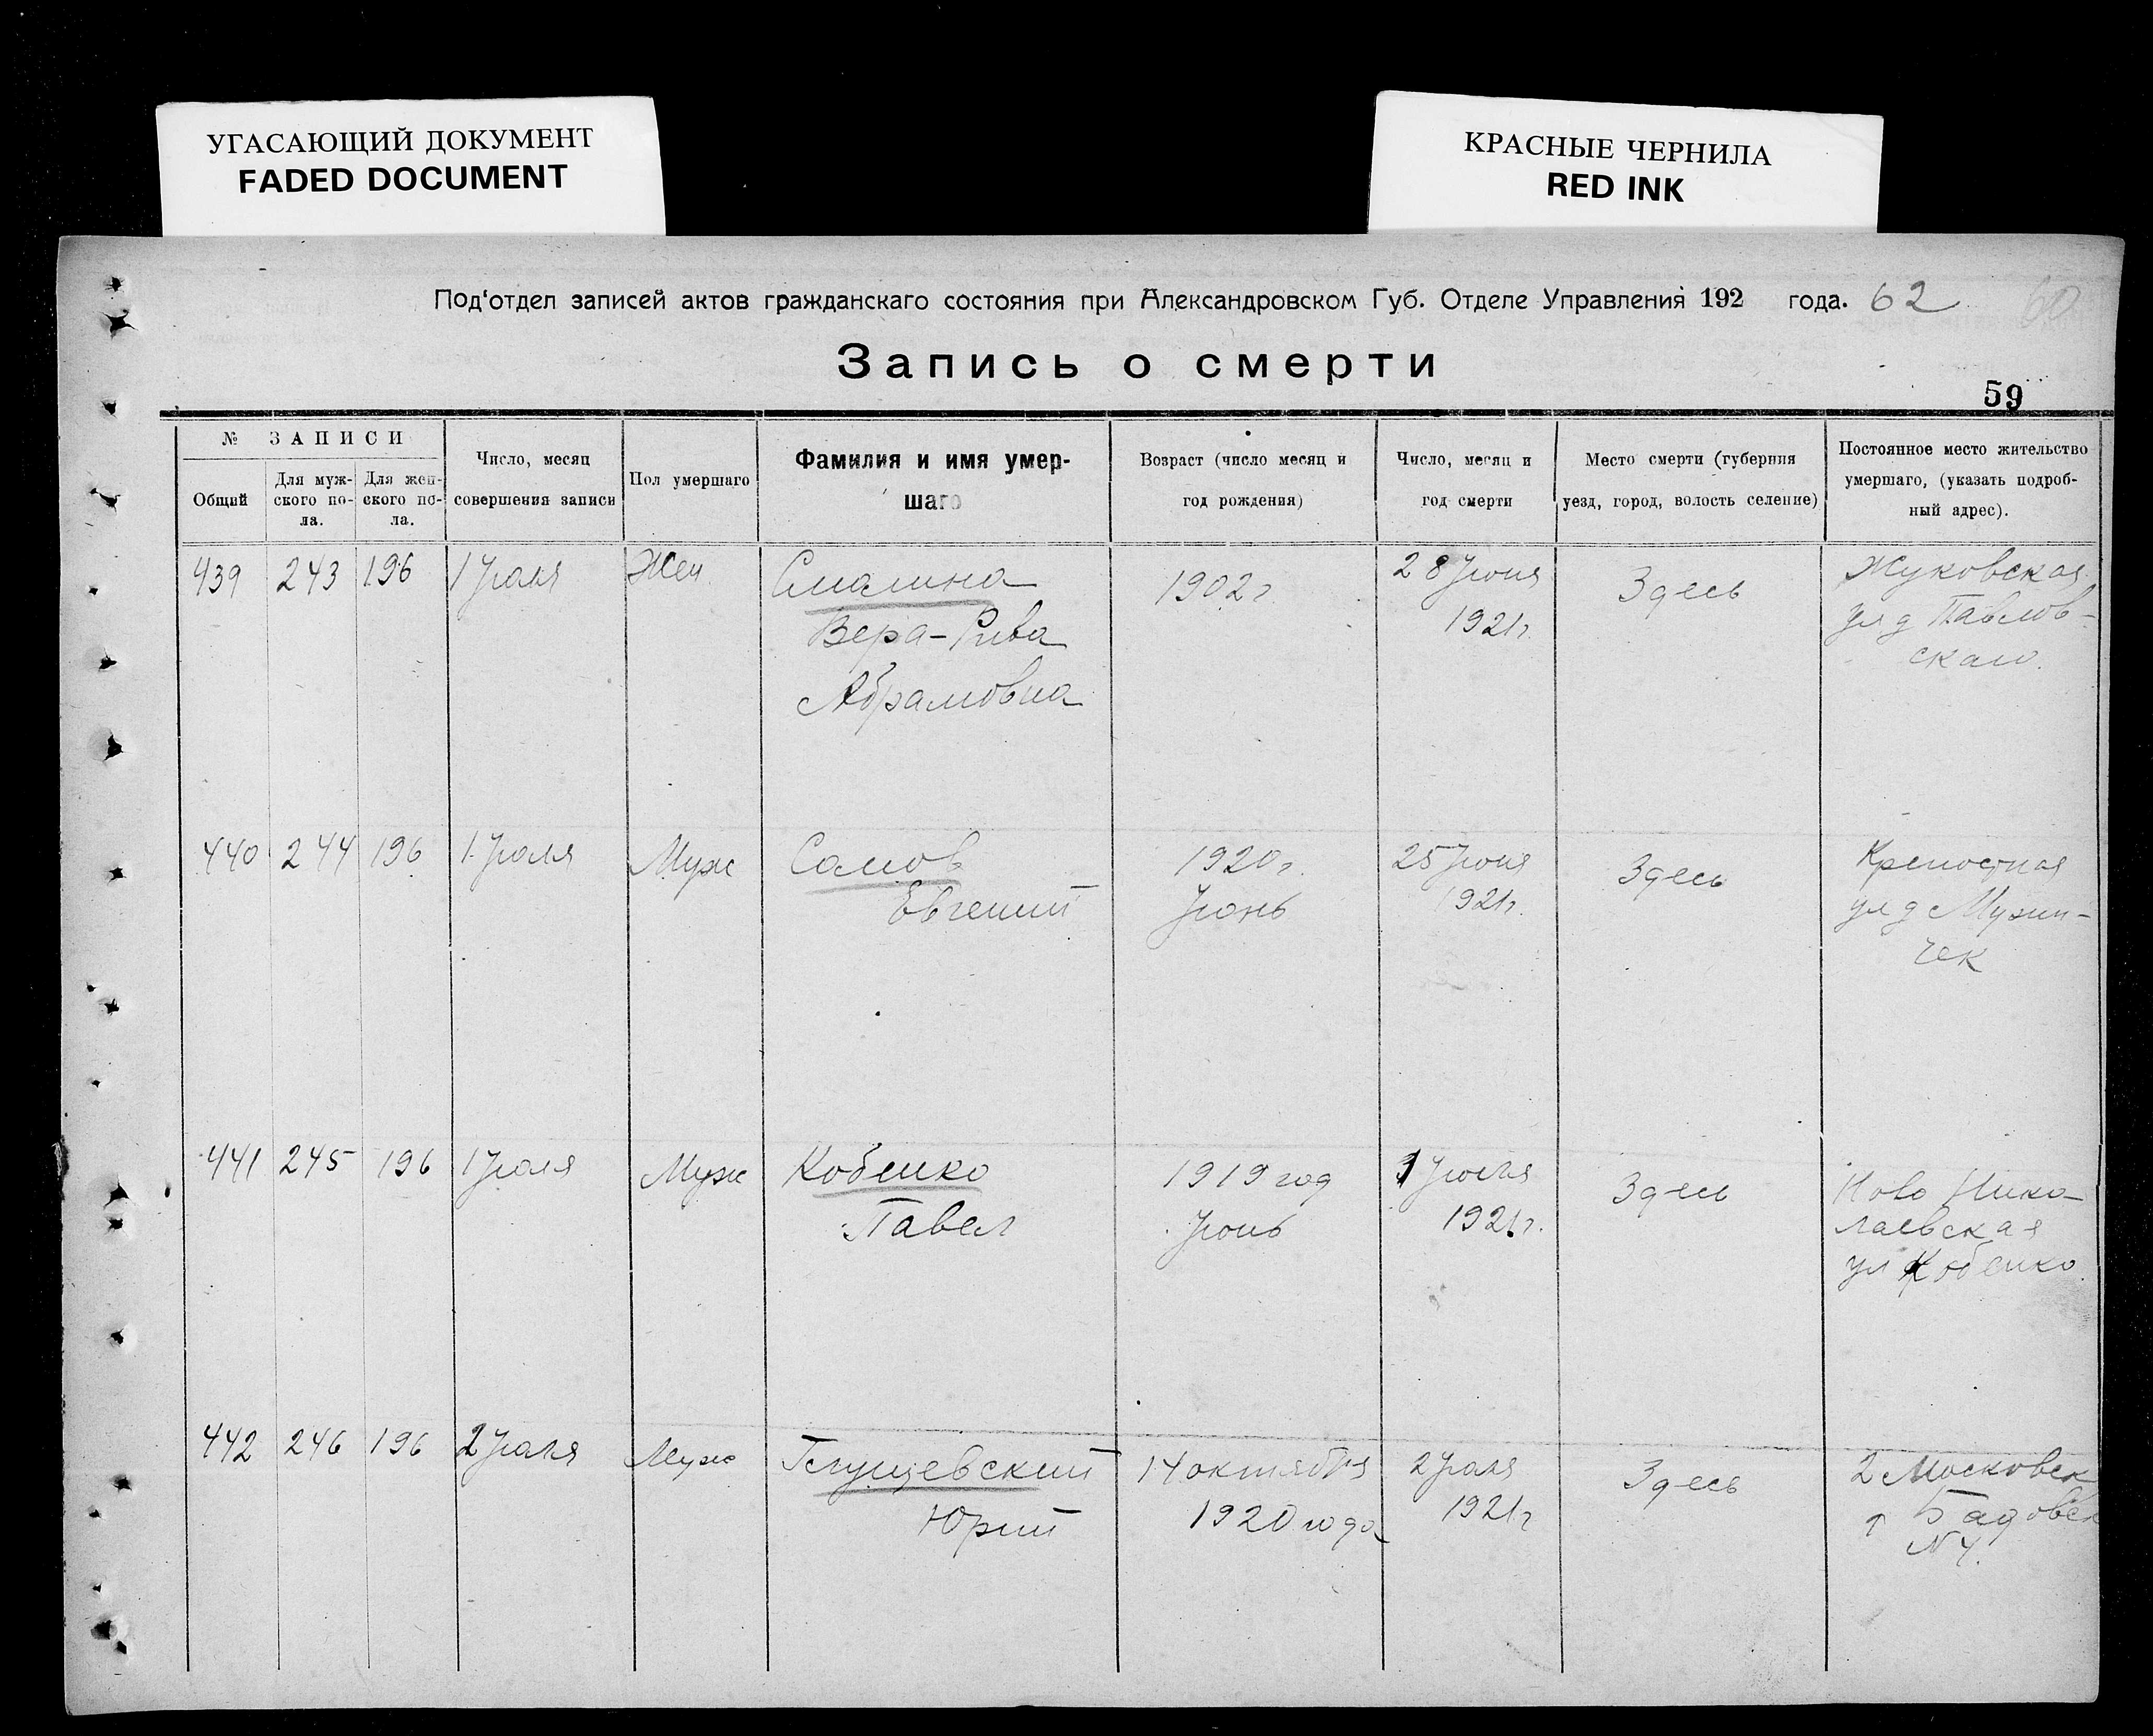 УГАСАЮЩИЙ ДОКУМЕНТ
FADED DOCUMENT
КРАСНЫЕ ЧЕРНИЛА
RED INK
Под‘отдел записей актов гражданскаго состояния при Александровском Губ. Отделе Управления 192 года. 62 60
Запись о смерти
59
№ ЗАПИСИ
Общий
Для муж-
ского по-
ла.
Для жен-
ского по-
ла.
Число, месяц
совершения записи
Пол умершаго
Фамилия и имя умер-
шаго
Возраст (число месяц и
год рождения)
Число, месяц и
год смерти
Место смерти (губерния
уезд, город, волость селение)
Постоянное место жительство
умершаго, (указать подроб-
ный адрес).
439 243 196 1 Июля Жен.
Смалина
Вера-Рива
Абрамовна
1902 г
28 Июня
1921 г.
Здесь
Жуковская
ул д Павлов-
скаго.
440 244 196 1 Июля Муж
Сомов
Евгений
1920 г.
Июнь
25 Июня
1921 г.
Здесь
Крепостная
ул д
чек
441 245 196 1 Июля Муж
Кобенко
Павел
1919 год
Июнь
1 Июля
1921 г.
Здесь
Ново Нико-
лаевская
ул Кобенко
442 246 196 2 Июля Муж
Юрий
14 октября
1920 года
2 Июля
1921 г
Здесь
2 Московск
N 4.